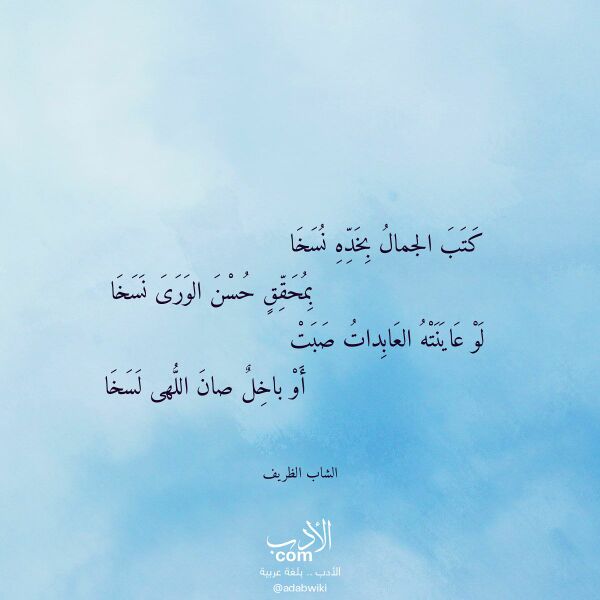 كَتَبَ الجمالُ بِخَدِّهِ نُسَخَا
بِمُحَقِّقٍ حُسْنَ الوَرَىَ نَسَخَا
لَوْ عَايَنَتْهُ العَابِداتُ صَبَتْ
أَوْ باخِلٌ صانَ اللُّهى لَسَخَا
الشاب الظريف
الأدب
com
الأدب .. بلغة عربية
@adabwiki